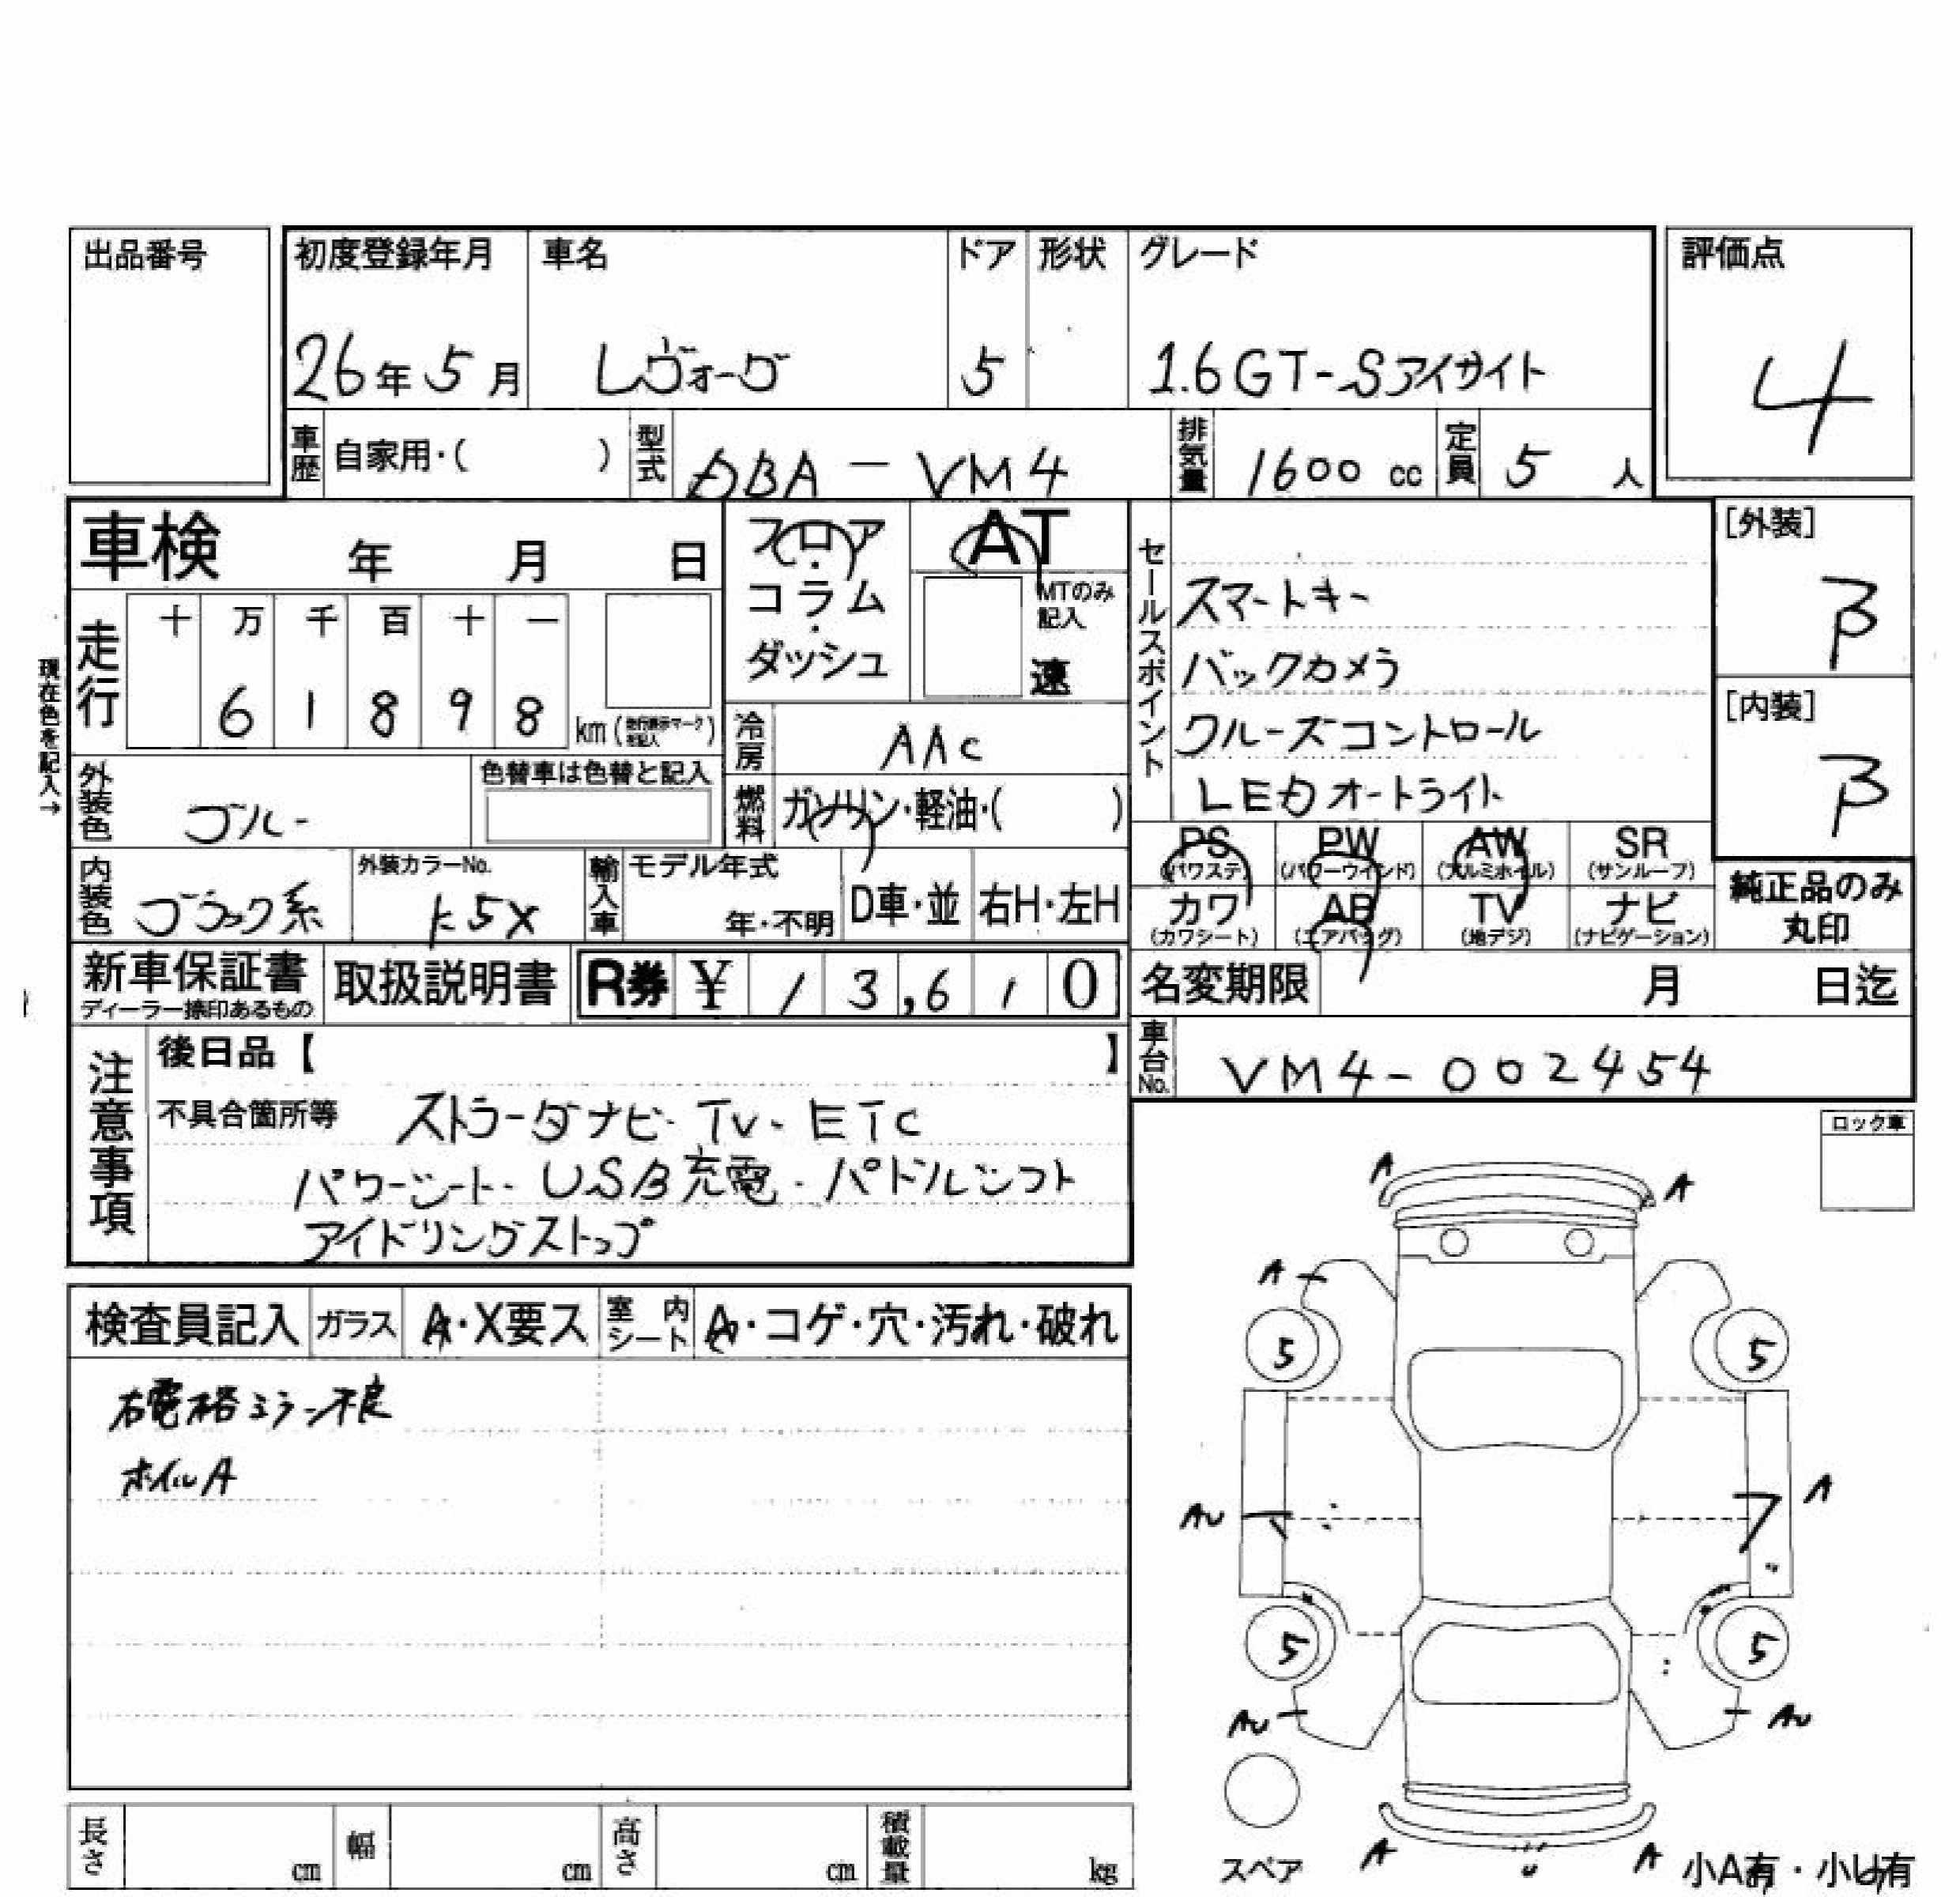 出品番号
初度登録年月 車名 ドア 形状 グレード 評価点
26年5月 レヴォーグ 5 1.6GT-Sアイサイト 4
車歴 自家用・( ) 型式 DBA-VM4 排気量 1600 cc 定員 5 人
車検 年 月 日
フロア・コラム・ダッシュ
AT
MTのみ記入
速
セールスポイント
スマートキー
バックカメラ
クルーズコントロール
LEDオートライト
[外装]
β
[内装]
β
現在色を記入→
走行 十 万 千 百 十 一
6 1 8 9 8 km(走行表示マーク記入)
冷房 AAC
外装色 ブルー 色替車は色替と記入
燃料 ガソリン・軽油・( )
PS(パワステ) PW(パワーウインド) AW(アルミホイル) SR(サンルーフ)
カワ(カワシート) AB(エアバッグ) TV(地デジ) ナビ(ナビゲーション)
純正品のみ丸印
内装色 ブラック系 外装カラーNo. K5X 輸入車 モデル年式 年・不明 D車・並 右H・左H
新車保証書 ディーラー捺印あるもの 取扱説明書 R券 ¥ 13,610
名変期限 月 日迄
車台No. VM4-002454
注意事項
後日品【 】
不具合箇所等 ストラーダナビ・TV・ETC
パワーシート・USB充電・パドルシフト
アイドリングストップ
ロック車
検査員記入 ガラス A・X要ス 室内シート A・コゲ・穴・汚れ・破れ
右電格ミラー不良
ホイルA
A A
A
5 5
AU A
5 5
AU AU
スペア A U A 小A有・小U有
長さ cm 幅 cm 高さ cm 積載量 kg